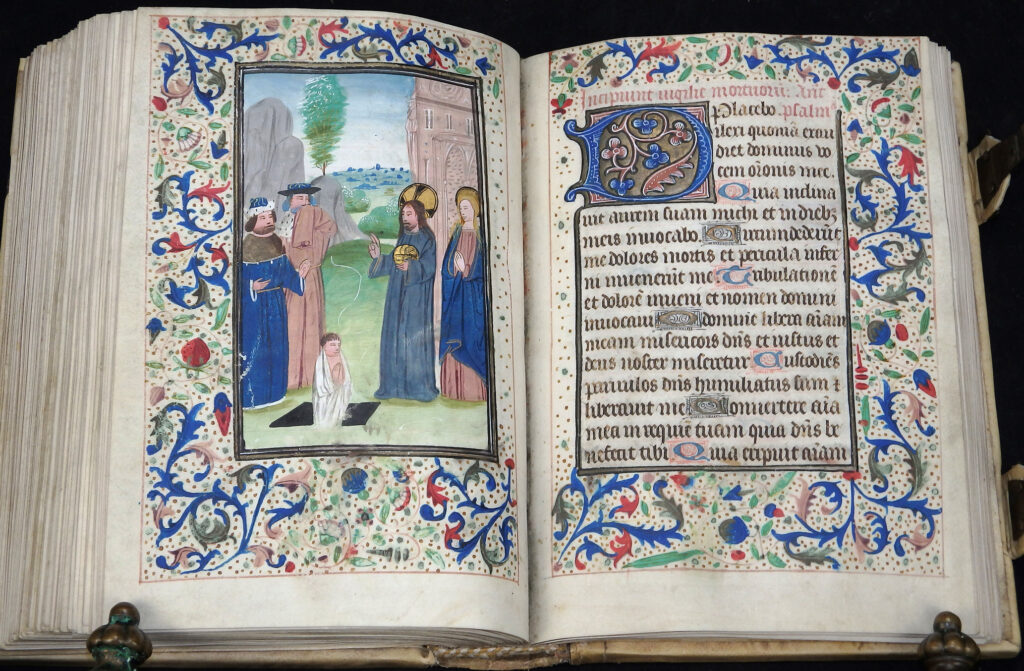 Incipiunt vigilie mortuorū: Ant
Placebo psalm
Dilexi quoniā exau
diet dominus vo
cem orōnis mee.
Quia inclina
uit aurem suam michi et in diebz
meis invocabo Circundederūt
me dolores mortis et pericula infer
ni invenerūt me Tribulationē
et dolorē inveni et nomen domini
invocavi O domine libera aīam
meam misericors dn̄s et iustus et
deus noster miseretur Custodiēs
parvulos dn̄s humiliatus sum ⁊
liberavit me Convertere aīa
mea in requiē tuam quia dn̄s be
nefecit tibi Quia eripuit aīam